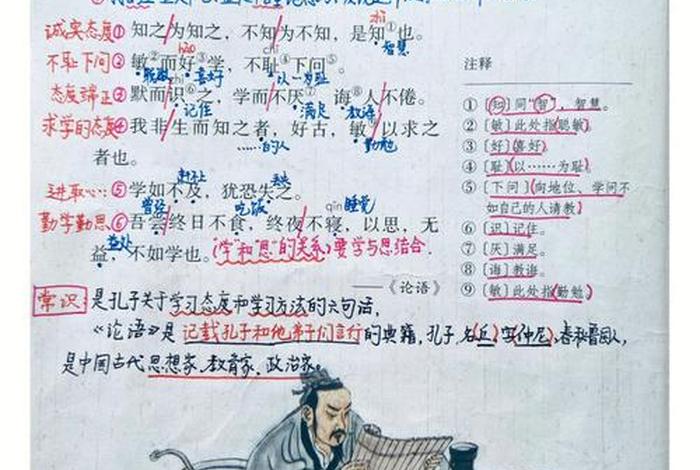 诚实态度① 知之为知之,不知为不知,是知①也。
zhī
智慧
不耻下问② 敏②而好③学,不耻④下问⑤。
hào
chǐ
聪敏 喜好 以…为耻
态度端正③ 默而识⑥之,学而不厌⑦,诲⑧人不倦。
zhì
记住 满足 教诲
求学的态度④ 我非生而知之者,好古,敏⑨以求之
者也。
……的人 勤勉
进取心:⑤ 学如不及,犹恐失之。
赶不上 丢失
勤学勤思⑥ 吾尝终日不食,终夜不寝,以思,无
曾经 吃饭 qǐn 睡觉
益,不如学也。
益处
"学"和"思"的关系:要学与思结合.
——《论语》
注释
①[知]同"智",智慧。
②[敏]此处指聪敏。
③[好]喜好。
④[耻]以……为耻。
⑤[下问]向地位、学问不
如自己的人请教。
⑥[识]记住。
⑦[厌]满足。
⑧[诲]教诲。
⑨[敏]此处指勤勉。
常识:是孔子关于学习态度和学习方法的六句话,
《论语》是记载孔子和他弟子们言行的典籍,孔子,名(丘),字(仲尼),春秋鲁国人,
是中国古代思想家、教育家、政治家。